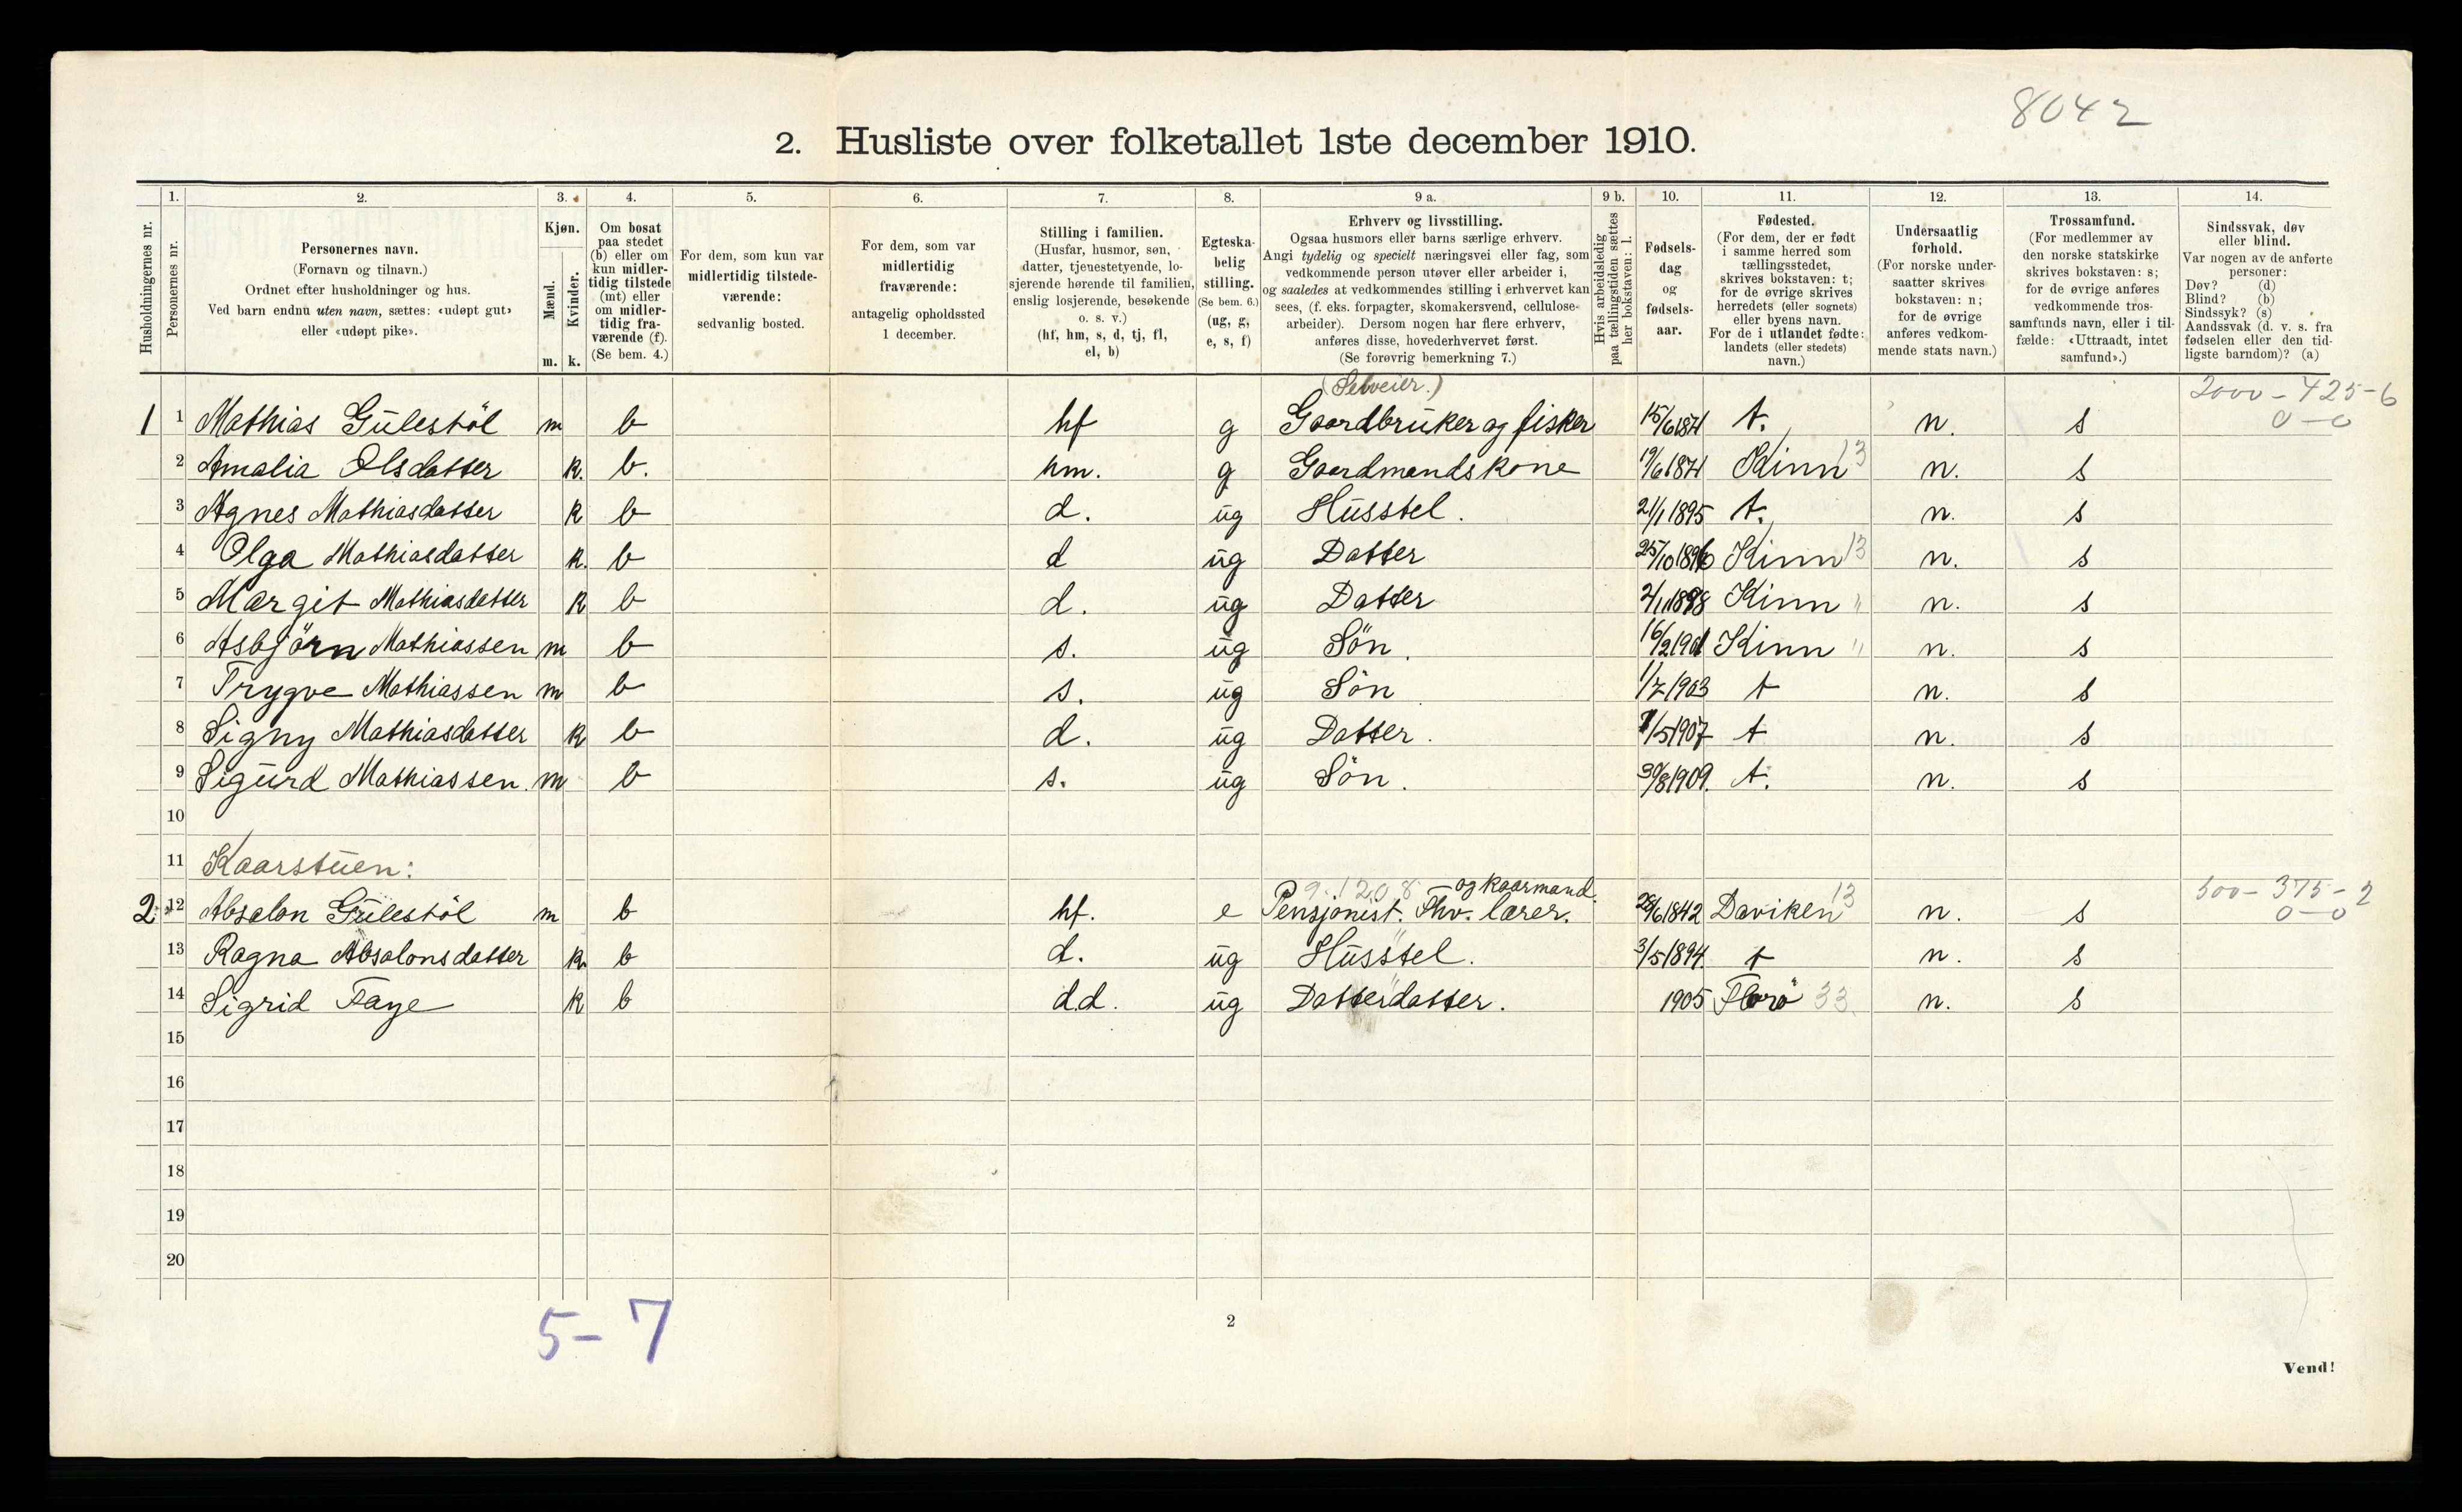 8042
2. Husliste over folketallet 1ste december 1910.
Husholdningernes nr.
1.
Personernes nr.
2.
Personernes navn.
(Fornavn og tilnavn.)
Ordnet efter husholdninger og hus.
Ved barn endnu uten navn, sættes: «udøpt gut»
eller «udøpt pike».
3.
Kjøn.
Mænd.
m.
Kvinder.
k.
4.
Om bosat
paa stedet
(b) eller om
kun midler-
tidig tilstede
(mt) eller
om midler-
tidig fra-
værende (f).
(Se bem. 4.)
5.
For dem, som kun var
midlertidig tilstede-
værende:
sedvanlig bosted.
6.
For dem, som var
midlertidig
fraværende:
antagelig opholdssted
1 december.
7.
Stilling i familien.
(Husfar, husmor, søn,
datter, tjenestetyende, lo-
sjerende hørende til familien,
enslig losjerende, besøkende
o. s. v.)
(hf, hm, s, d, tj, fl,
el, b)
8.
Egteska-
belig
stilling.
(Se bem. 6.)
(ug, g,
e, s, f)
9 a.
Erhverv og livsstilling.
Ogsaa husmors eller barns særlige erhverv.
Angi tydelig og specielt næringsvei eller fag, som
vedkommende person utøver eller arbeider i,
og saaledes at vedkommendes stilling i erhvervet kan
sees, (f. eks. forpagter, skomakersvend, cellulose-
arbeider). Dersom nogen har flere erhverv,
anføres disse, hovederhvervet først.
(Se forøvrig bemerkning 7.)
9 b.
Hvis arbeidsledig
paa tællingstiden sættes
her bokstaven: l.
10.
Fødsels-
dag
og
fødsels-
aar.
11.
Fødested.
(For dem, der er født
i samme herred som
tællingsstedet,
skrives bokstaven: t;
for de øvrige skrives
herredets (eller sognets)
eller byens navn.
For de i utlandet fødte:
landets (eller stedets)
navn.)
12.
Undersaatlig
forhold.
(For norske under-
saatter skrives
bokstaven: n;
for de øvrige
anføres vedkom-
mende stats navn.)
13.
Trossamfund.
(For medlemmer av
den norske statskirke
skrives bokstaven: s;
for de øvrige anføres
vedkommende tros-
samfunds navn, eller i til-
fælde: «Uttraadt, intet
samfund».)
14.
Sindssvak, døv
eller blind.
Var nogen av de anførte
personer:
Døv? (d)
Blind? (b)
Sindssyk? (s)
Aandssvak (d. v. s. fra
fødselen eller den tid-
ligste barndom)? (a)
(Selveier.) 2000 - 425 - 6
1 1 Mathias Gulestöl m b hf g Gaardbruker og fisker 15/6 1871 t. n. s 0 - 0
2 Amalia Olsdatter k. b. hm. g Gaardmandskone 19/6 1871 Kinn 13 n. s
3 Agnes Mathiasdatter k b d. ug Husstel. 21/1 1895 t. n. s
4 Olga Mathiasdatter k. b d ug Datter 25/10 1896 Kinn 13 n. s
5 Margit Mathiasdatter k b d. ug Datter 2/1 1898 Kinn " n. s
6 Asbjörn Mathiassen m b s. ug Sön. 16/2 1901 Kinn " n. s
7 Trygve Mathiassen m b s. ug Sön 1/7 1903 t n. s
8 Signy Mathiasdatter k b d. ug Datter. 7/5 1907 t n. s
9 Sigurd Mathiassen. m b s. ug Sön. 30/8 1909. t. n. s
10
11 Kaarstuen:
9.120.8 og kaarmand. 500 - 375 - 2
2. 12 Absalon Gulestöl m b hf. e Pensjonist. Fhv. lærer. 28/6 1842 Daviken 13 n. s 0 - 0
13 Ragna Absalonsdatter k b d. ug Husstel. 3/5 1894. t n. s
14 Sigrid Faye k b d.d. ug Datterdatter. 1905 Florö 33. n. s
15
16
17
18
19
20
5 - 7
2
Vend!